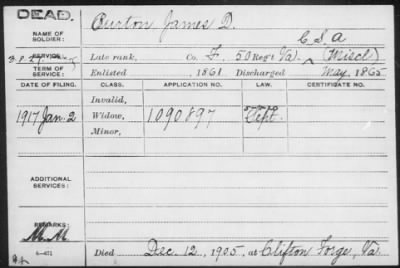 DEAD.
NAME OF SOLDIER: Burton James D.
SERVICE Late rank, Co. F. 50 Reg't Va. C. S. A (Miscl)
TERM OF SERVICE: Enlisted , 1861 Discharged May, 1865
DATE OF FILING. CLASS. APPLICATION NO. LAW. CERTIFICATE NO.
Invalid,
1917 Jan. 2 Widow, 1090897 Sept.
Minor,
ADDITIONAL SERVICES:
REMARKS:
M.M
6—671
Died Dec. 12, 1905, at Clifton Forge, Va.